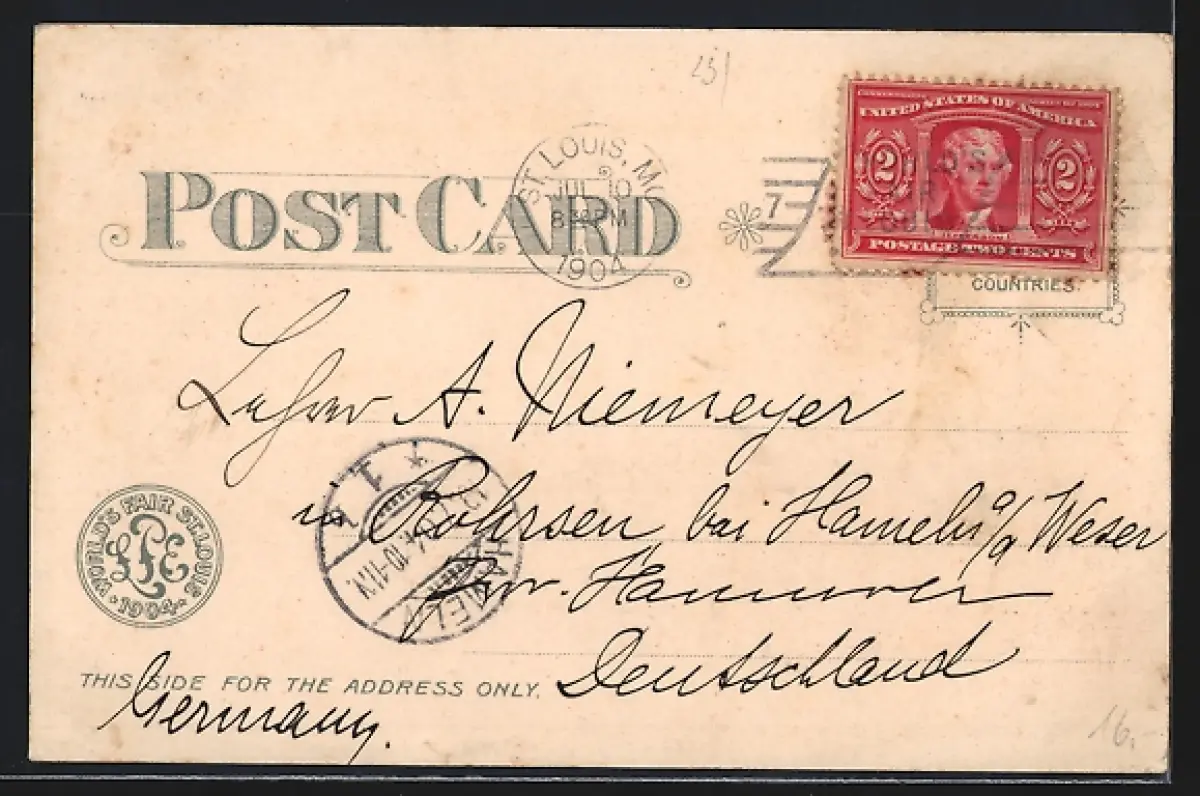 25)
POST CARD
ST. LOUIS, MO.
JUL 10
8 30 PM
1904
7
UNITED STATES OF AMERICA
2 2
JEFFERSON
POSTAGE TWO CENTS
COUNTRIES.
Lehrer A. Niemeyer
in Rohrsen bei Hameln a/d Weser
Prv. Hannover
Deutschland
HAMELN
10-11.V.
WORLD'S FAIR ST. LOUIS
LPE
1904
THIS SIDE FOR THE ADDRESS ONLY.
Germany.
16.-